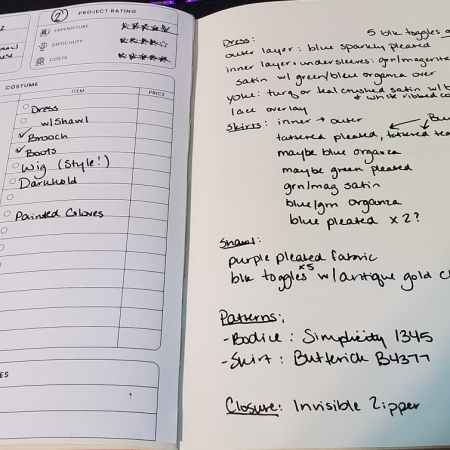 2
PROJECT RATING
EXPENDITURE
DIFFICULTY
COSTS
COSTUME
ITEM
PRICE
Dress
w/shawl
Brooch
Boots
Wig (Style!)
Darkhold
Painted Gloves
ES
Dress:
5 blk toggles
outer layer: blue sparkly pleated
inner layer + undersleeves: grn/magenta
satin w/ green/blue organza over
yoke: turq or teal crushed satin w/
lace overlay
+ white ribbed
Skirts: inner → outer
tattered pleated, tattered
maybe blue organza
maybe green pleated
grn/mag satin
blue/grn organza
blue pleated x 2?
Shawl:
purple pleated fabric
blk toggles x5 w/antique gold
Patterns:
-Bodice: Simplicity 1345
-Skirt: Butterick B4377
Closure: Invisible Zipper